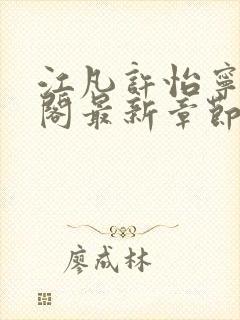 江凡許怡寧
閣最新章節
廖成林